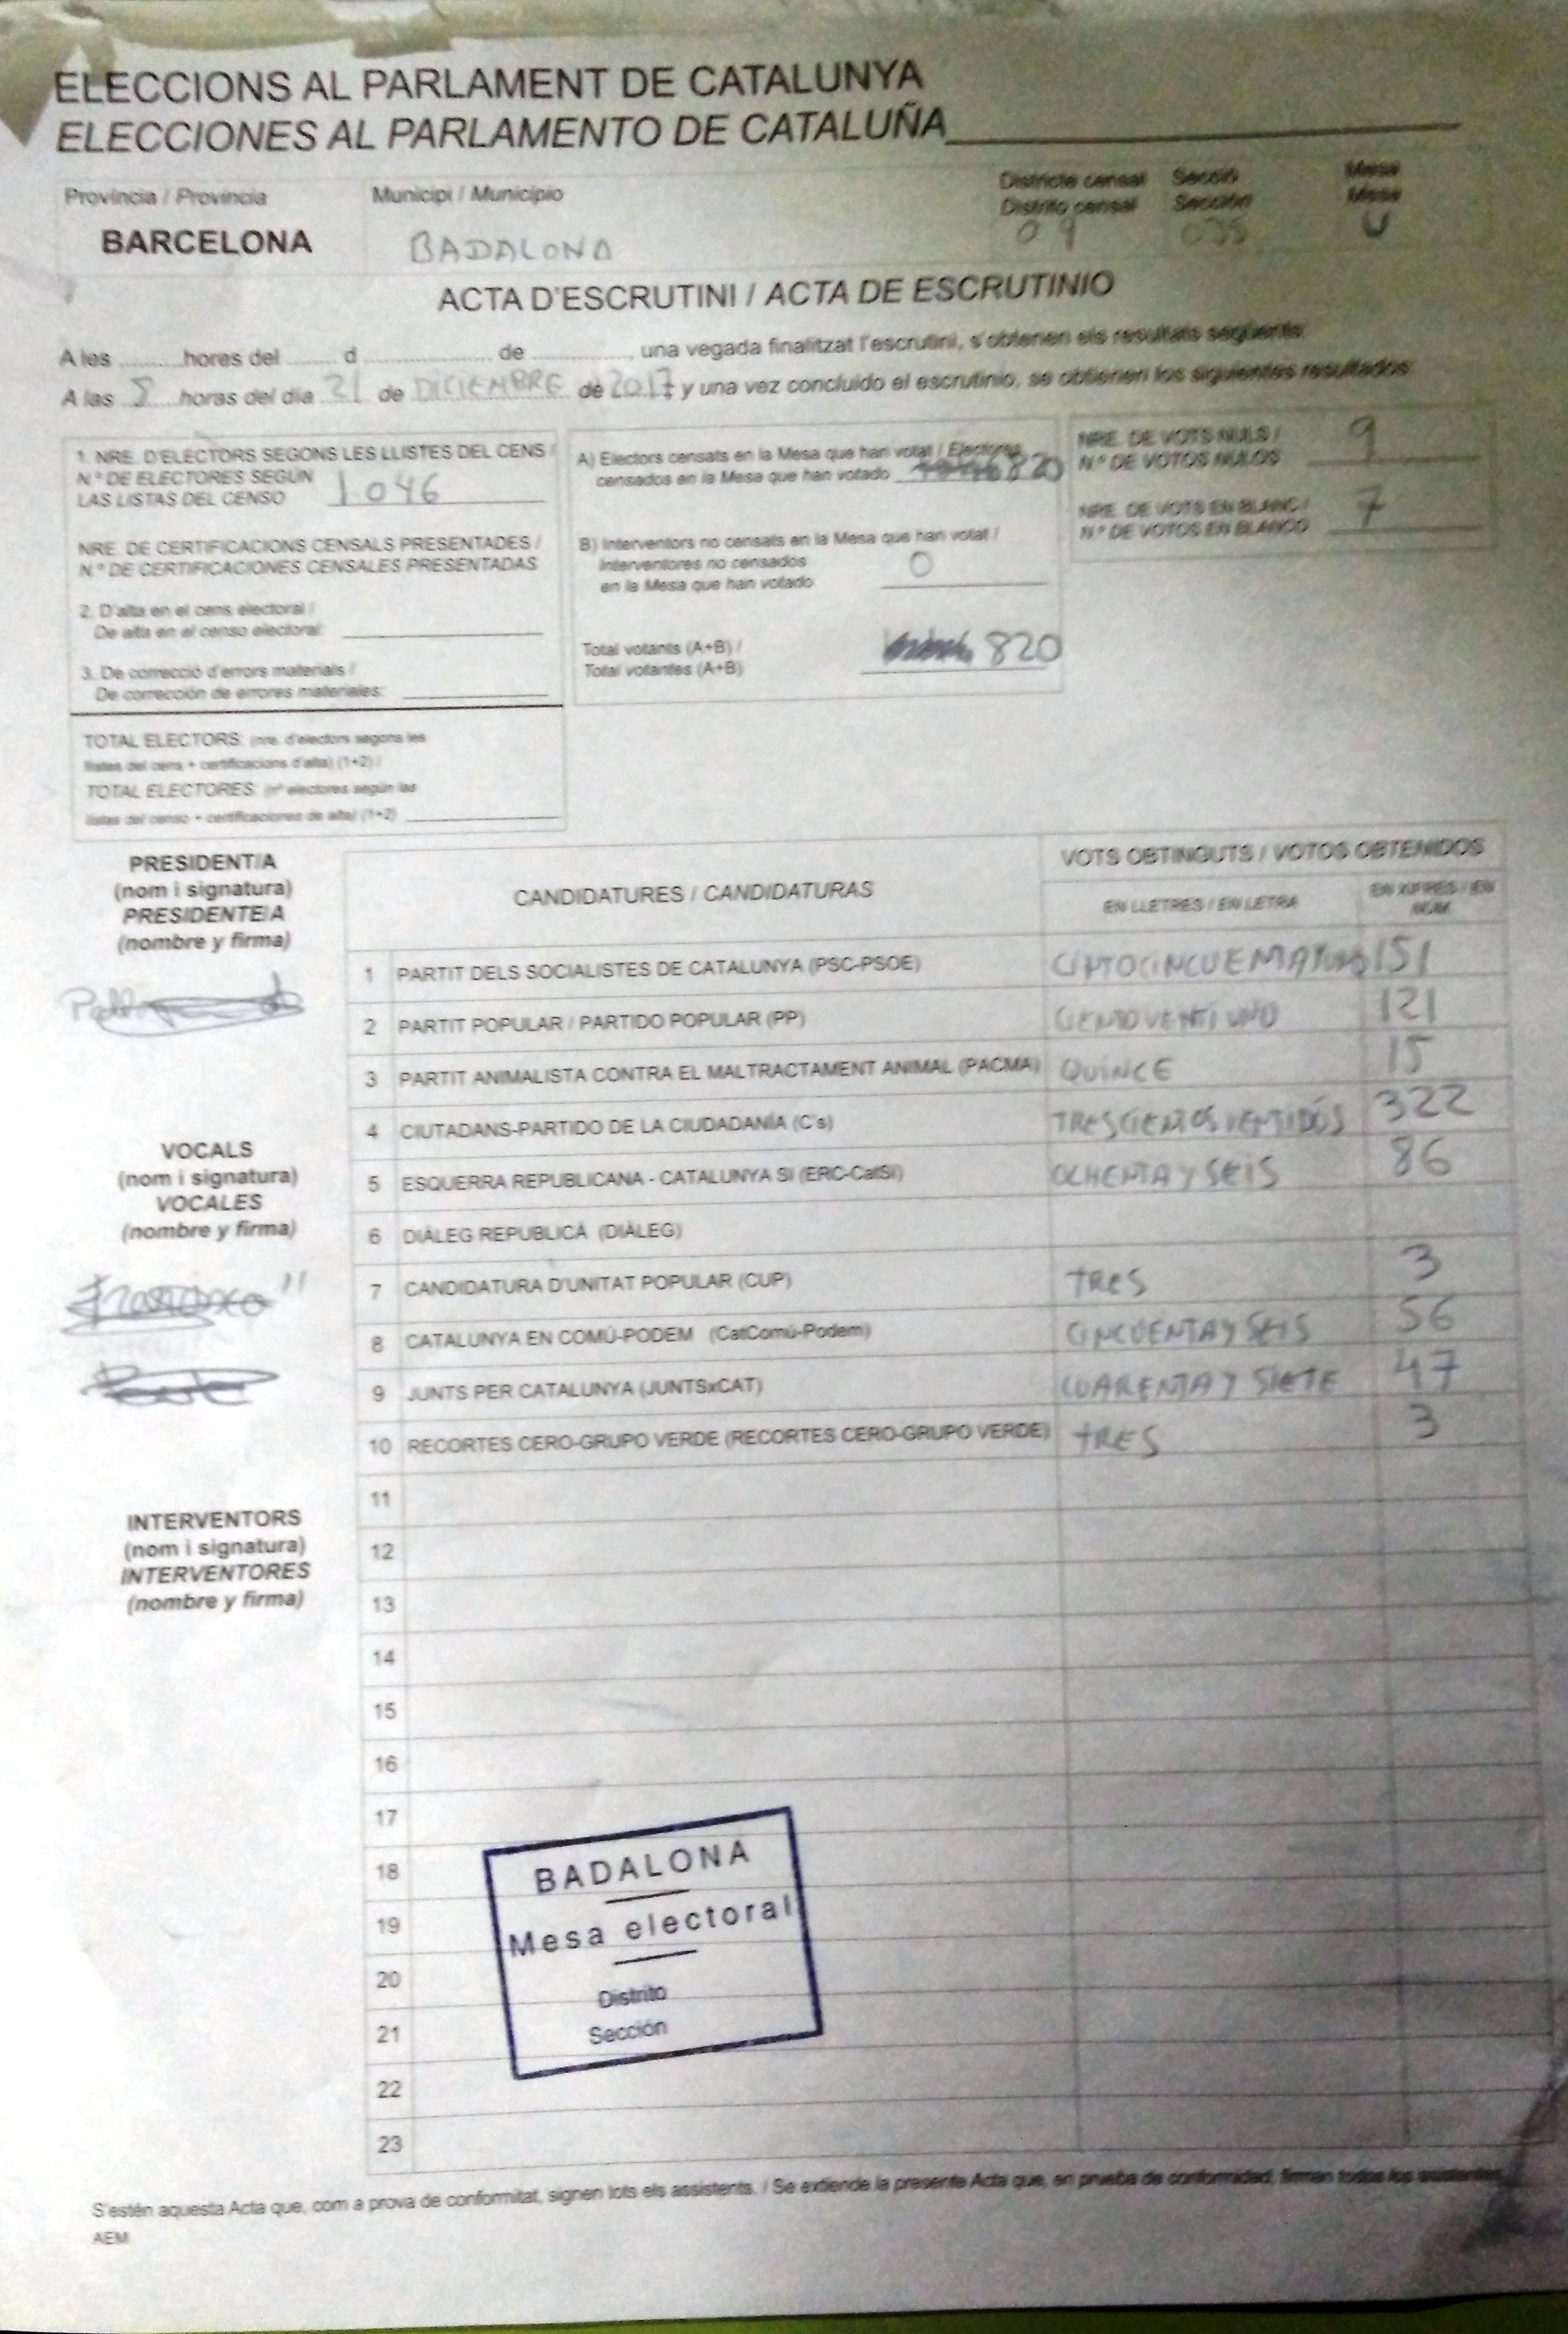 ELECCIONS AL PARLAMENT DE CATALUNYA
ELECCIONES AL PARLAMENTO DE CATALUÑA
Província / Provincia
Municipi / Municipio
Districte censal Secció Mesa
Distrito censal Sección Mesa
BARCELONA BADALONA 09 035 U
ACTA D'ESCRUTINI / ACTA DE ESCRUTINIO
A les ......... hores del ........ d .................... de ................, una vegada finalitzat l'escrutini, s'obtenen els resultats següents:
A las 8 horas del día 21 de DICIEMBRE de 2017 y una vez concluido el escrutinio, se obtienen los siguientes resultados:
1. NRE. D'ELECTORS SEGONS LES LLISTES DEL CENS /
N.º DE ELECTORES SEGÚN
LAS LISTAS DEL CENSO 1046
NRE. DE CERTIFICACIONS CENSALS PRESENTADES /
N.º DE CERTIFICACIONES CENSALES PRESENTADAS
2. D'alta en el cens electoral /
De alta en el censo electoral:
3. De correcció d'errors materials /
De corrección de errores materiales:
TOTAL ELECTORS: (nre. d'electors segons les
llistes del cens + certificacions d'alta) (1+2) /
TOTAL ELECTORES: (nº electores según las
listas del censo + certificaciones de alta) (1+2)
A) Electors censats en la Mesa que han votat / Electores
censados en la Mesa que han votado 820
B) Interventors no censats en la Mesa que han votat /
Interventores no censados
en la Mesa que han votado 0
Total votants (A+B) /
Total votantes (A+B) 820
NRE. DE VOTS NULS /
N.º DE VOTOS NULOS 9
NRE. DE VOTS EN BLANC /
N.º DE VOTOS EN BLANCO 7
PRESIDENT/A
(nom i signatura)
PRESIDENTE/A
(nombre y firma)
VOCALS
(nom i signatura)
VOCALES
(nombre y firma)
INTERVENTORS
(nom i signatura)
INTERVENTORES
(nombre y firma)
CANDIDATURES / CANDIDATURAS
VOTS OBTINGUTS / VOTOS OBTENIDOS
EN LLETRES / EN LETRA
EN XIFRES / EN
NUM.
1 PARTIT DELS SOCIALISTES DE CATALUNYA (PSC-PSOE) 151
2 PARTIT POPULAR / PARTIDO POPULAR (PP) CIENTO VENTI UNO 121
3 PARTIT ANIMALISTA CONTRA EL MALTRACTAMENT ANIMAL (PACMA) QUINCE 15
4 CIUTADANS-PARTIDO DE LA CIUDADANÍA (C's) TRESCIENTOS VENTIDÓS 322
5 ESQUERRA REPUBLICANA - CATALUNYA SI (ERC-CatSI) OCHENTA Y SEIS 86
6 DIÀLEG REPUBLICÀ (DIÀLEG)
7 CANDIDATURA D'UNITAT POPULAR (CUP) TRES 3
8 CATALUNYA EN COMÚ-PODEM (CatComú-Podem) CINCUENTA Y SEIS 56
9 JUNTS PER CATALUNYA (JUNTSxCAT) CUARENTA Y SIETE 47
10 RECORTES CERO-GRUPO VERDE (RECORTES CERO-GRUPO VERDE) TRES 3
11
12
13
14
15
16
17
18
19
20
21
22
23
BADALONA
Mesa electoral
Distrito
Sección
S'estén aquesta Acta que, com a prova de conformitat, signen tots els assistents. / Se extiende la presente Acta que, en prueba de conformidad, firman todos los asistentes.
AEM